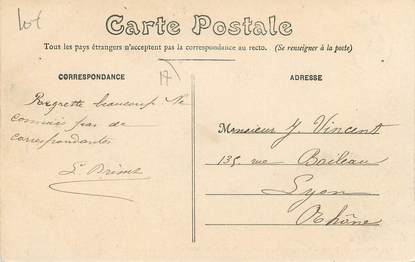 lot
Carte Postale
Tous les pays étrangers n'acceptent pas la correspondance au recto. (Se renseigner à la poste)
CORRESPONDANCE
17
ADRESSE
Regrette beaucoup Ne
connais pas de
correspondantes
Monsieur J. Vincent
135 rue Boileau
Lyon
Rhône